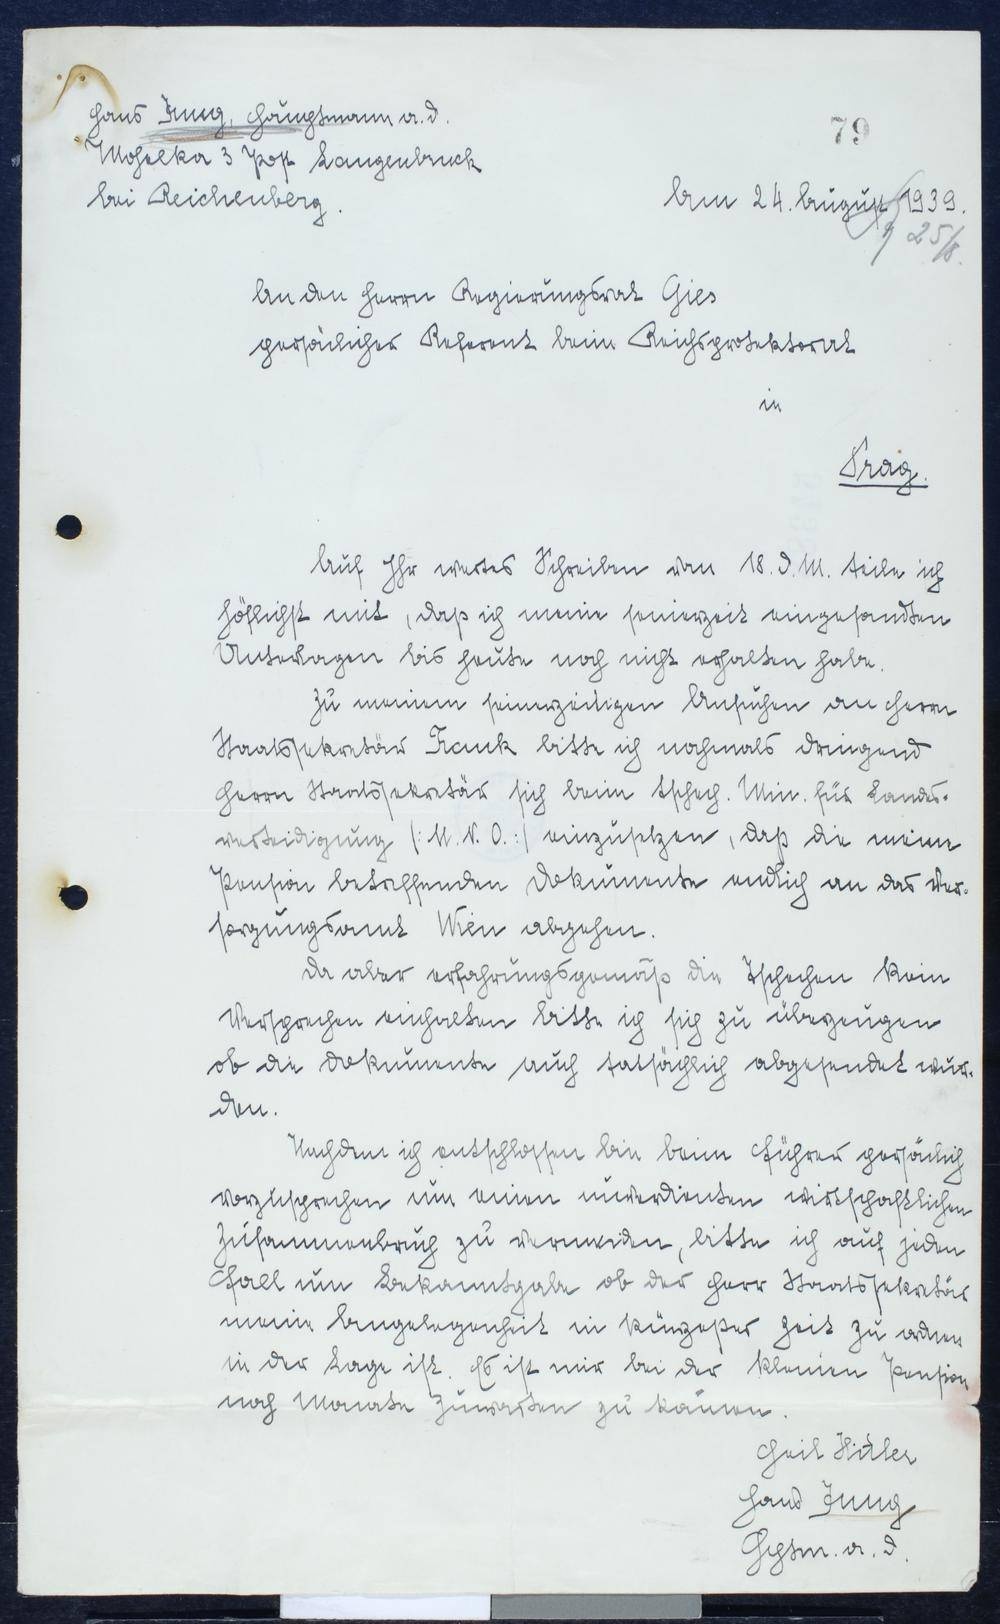 Hans Jung, Hauptmann a.d.
79
Mohelka 3 Post Langenbruck
bei Reichenberg.
Am 24. August 1939.
25/8.
An den Herrn Regierungsrat Gies
persönlicher Referent beim Reichsprotektorat
in
Prag.
Auf Ihr wertes Schreiben vom 18. d. M. teile ich
höflichst mit, daß ich meine seinerzeit eingesandten
Unterlagen bis heute noch nicht erhalten habe.
Zu meinem seinerzeitigen Ansuchen an Herrn
Staatssekretär Frank bitte ich nochmals dringend
Herrn Staatssekretär sich beim tschech. Min. für Landes-
verteidigung /: M. N. O. :/ einzusetzen, daß die meine
Pension betreffenden Dokumente endlich an das Ver-
sorgungsamt Wien abgehen.
Da aber erfahrungsgemäß die Tschechen kein
Versprechen einhalten bitte ich sich zu überzeugen
ob die Dokumente auch tatsächlich abgesendet wur-
den.
Nachdem ich entschlossen bin beim Führer persönlich
vorzusprechen um einen unverdienten wirtschaftlichen
Zusammenbruch zu vermeiden, bitte ich auf jeden
Fall um Bekanntgabe ob der Herr Staatssekretär
meine Angelegenheit in kürzester Zeit zu ordnen
in der Lage ist. Es ist mir bei der kleinen Pension
noch Monate zuwarten zu können.
Heil Hitler
Hans Jung
Hptm. a. d.